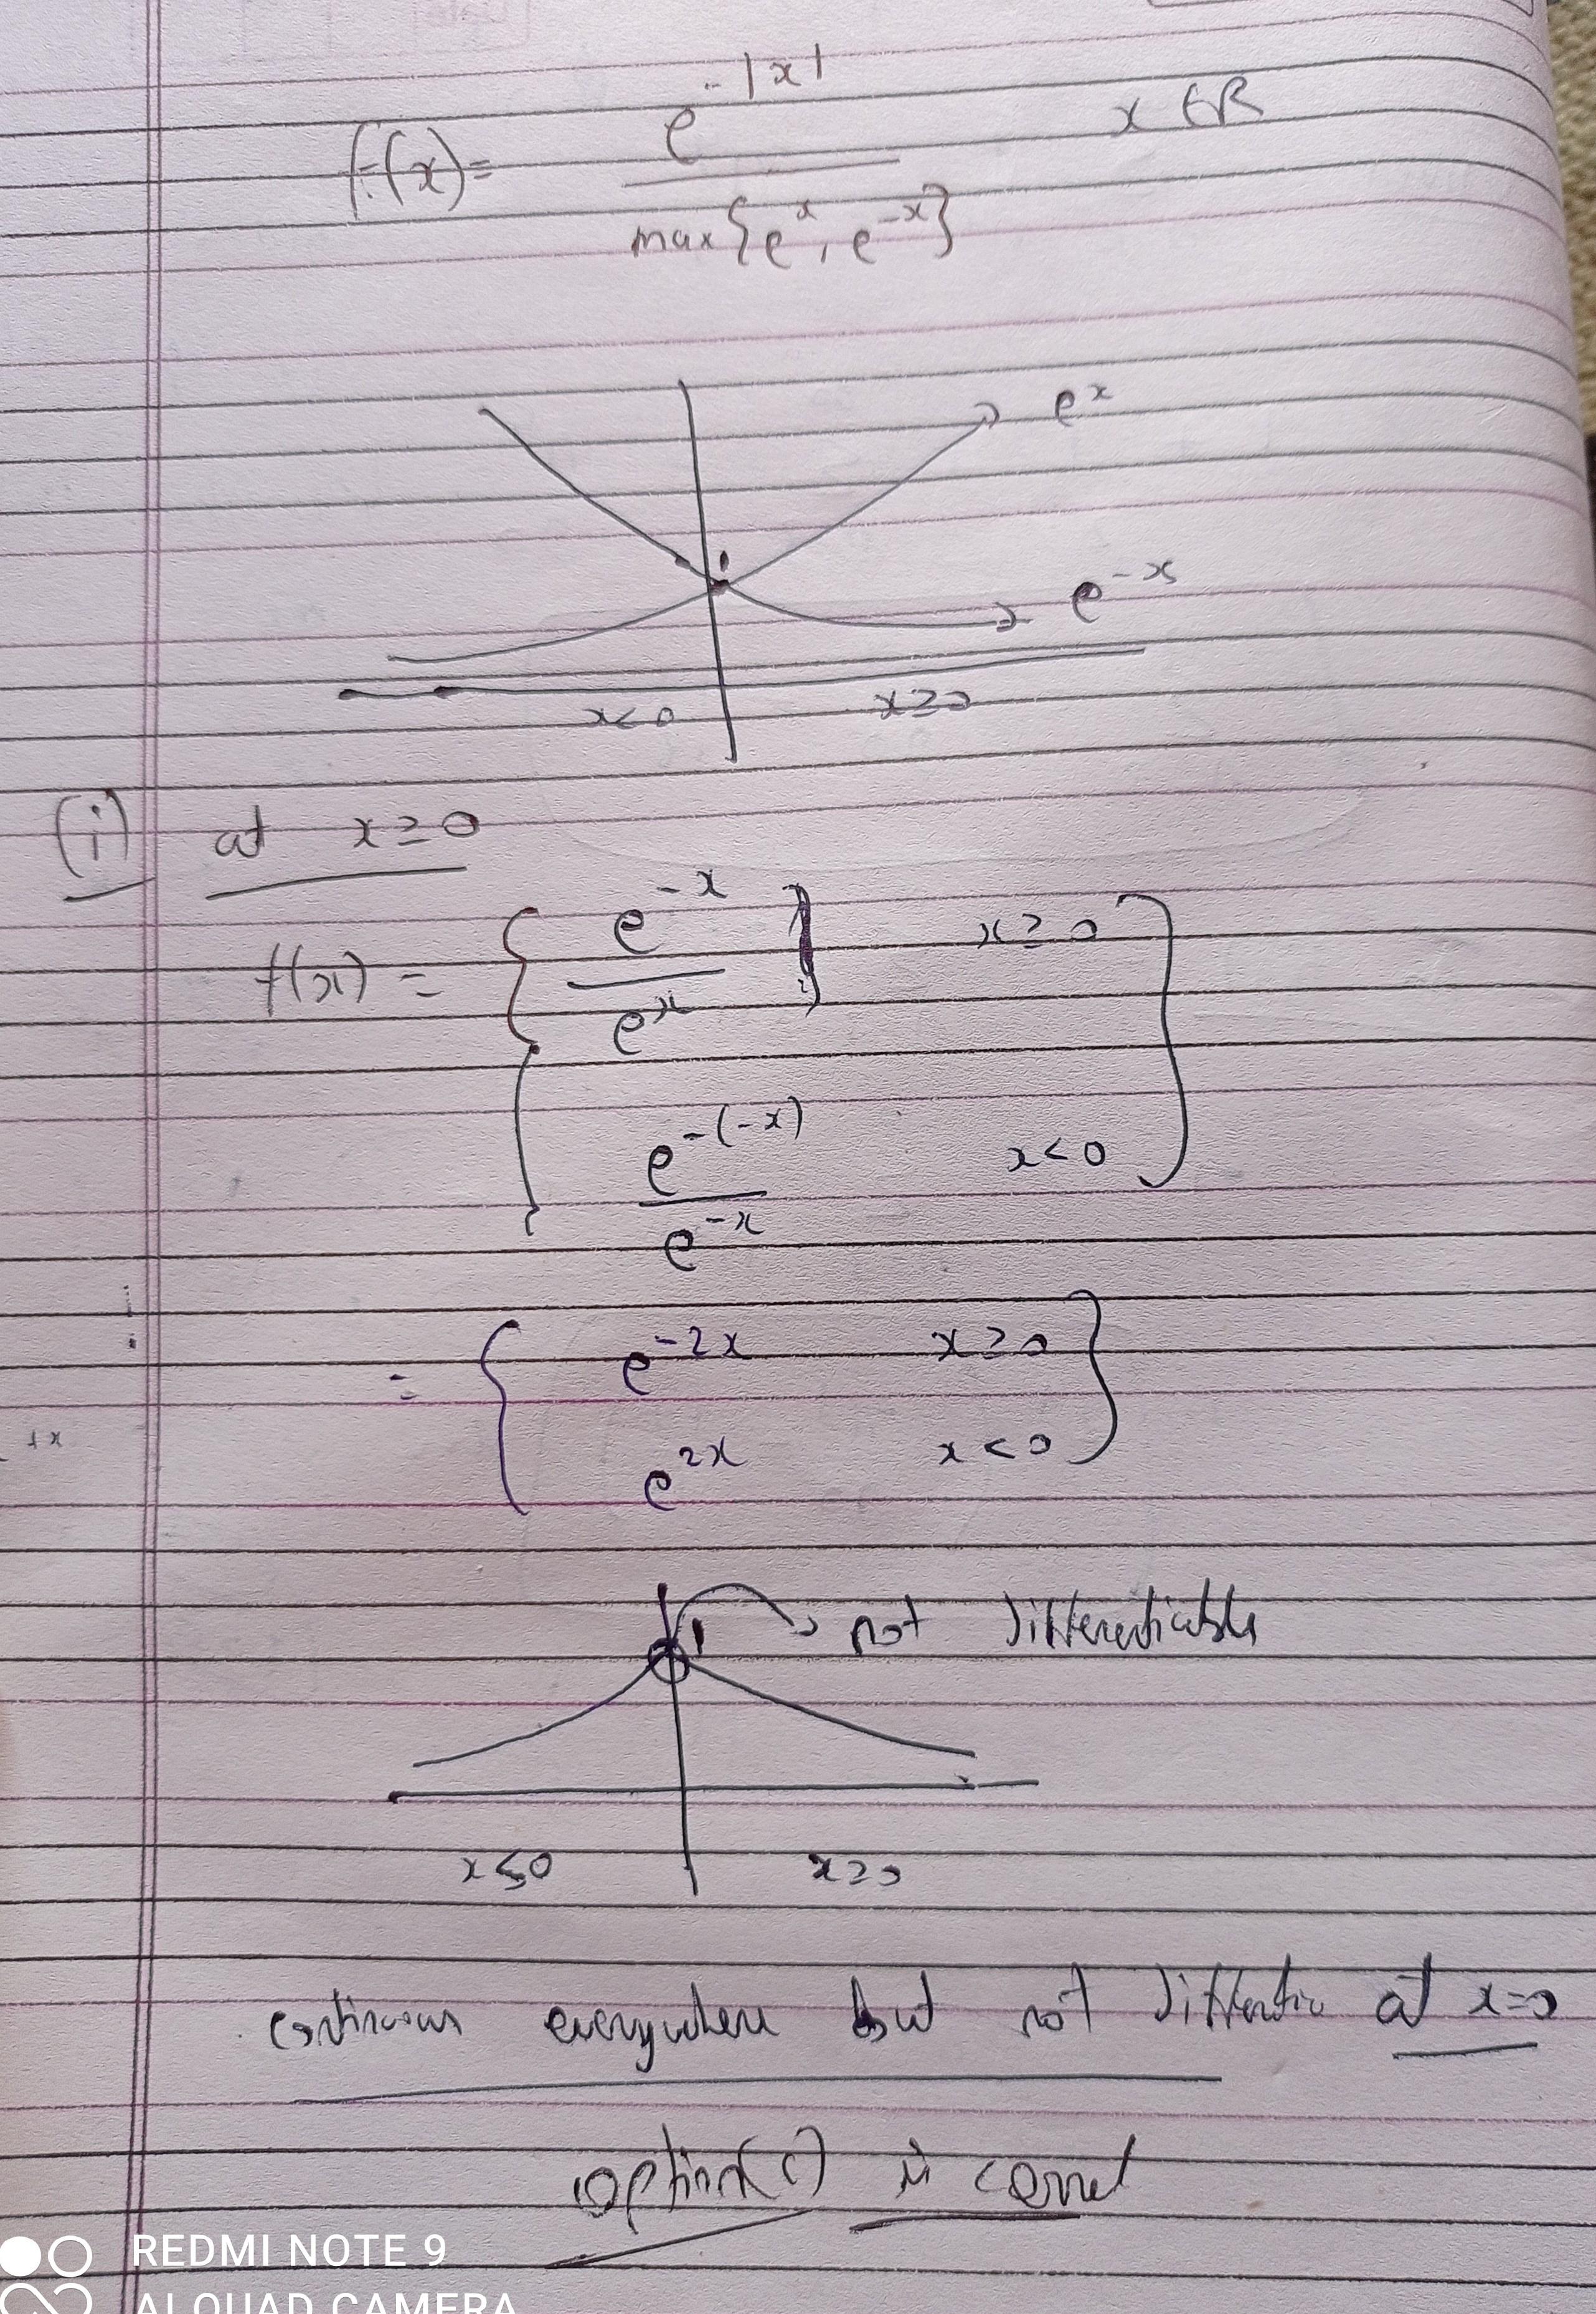 f(x) = e^-|x| / max{e^x, e^-x} x ∈ R
e^x
1
e^-x
x<0 x≥0
(i) at x≥0
f(x) = { e^-x / e^x x≥0
e^-(-x) / e^-x x<0 }
= { e^-2x x≥0
e^2x x<0 }
1 not differentiable
x≤0 x≥0
continuous everywhere but not at x=0
option(c) is correct
REDMI NOTE 9
AI QUAD CAMERA